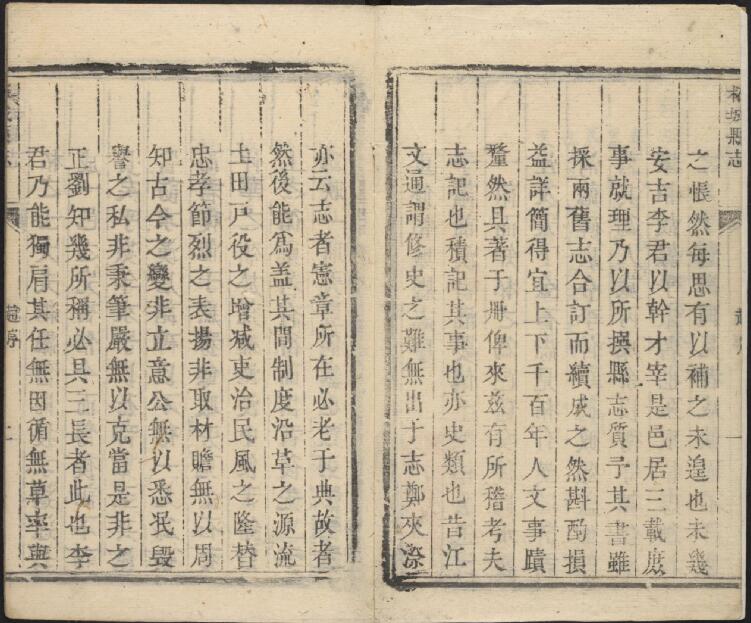 柘城縣志
之悵然每思有以補之未遑也未幾
安吉李君以幹才宰是邑居三載庶
事就理乃以所撰縣志質予其書雖
採兩舊志合訂而續成之然斟酌損
益詳簡得宜上下千百年人文事蹟
釐然具著于册俾來兹有所稽考夫
志記也積記其事也亦史類也昔江
文通謂修史之難無出于志鄭夾漈
亦云志者憲章所在必老于典故者
然後能爲盖其間制度沿革之源流
土田戸役之增减吏治民風之隆替
忠孝節烈之表揚非取材贍無以周
知古今之變非立意公無以悉泯毁
譽之私非秉筆嚴無以克當是非之
正劉知幾所稱必具三長者此也李
君乃能獨肩其任無因循無草率與
趙序